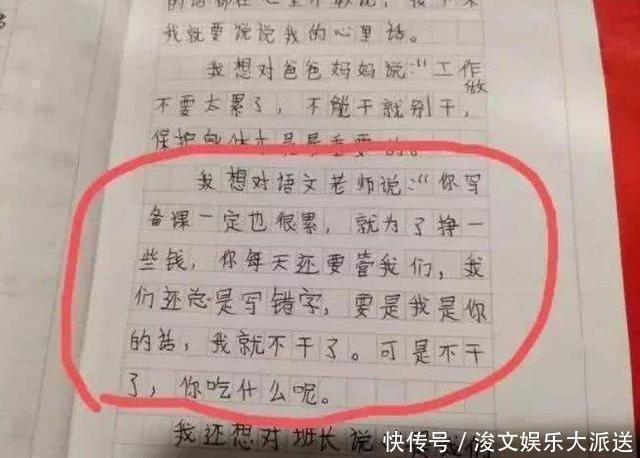 我就要说说我的心里话。
我想对爸爸妈妈说:“工作做
不要太累了,不能干就别干,
保护身体才是最重要的。
我想对语文老师说:“你写
备课一定也很累,就为了挣一
些钱,你每天还要管我们,我
们还总是写错字,要是我是你
的话,我就不干了。可是不干
了,你吃什么呢。
我还想对班长说
快传号/浚文娱乐大派送